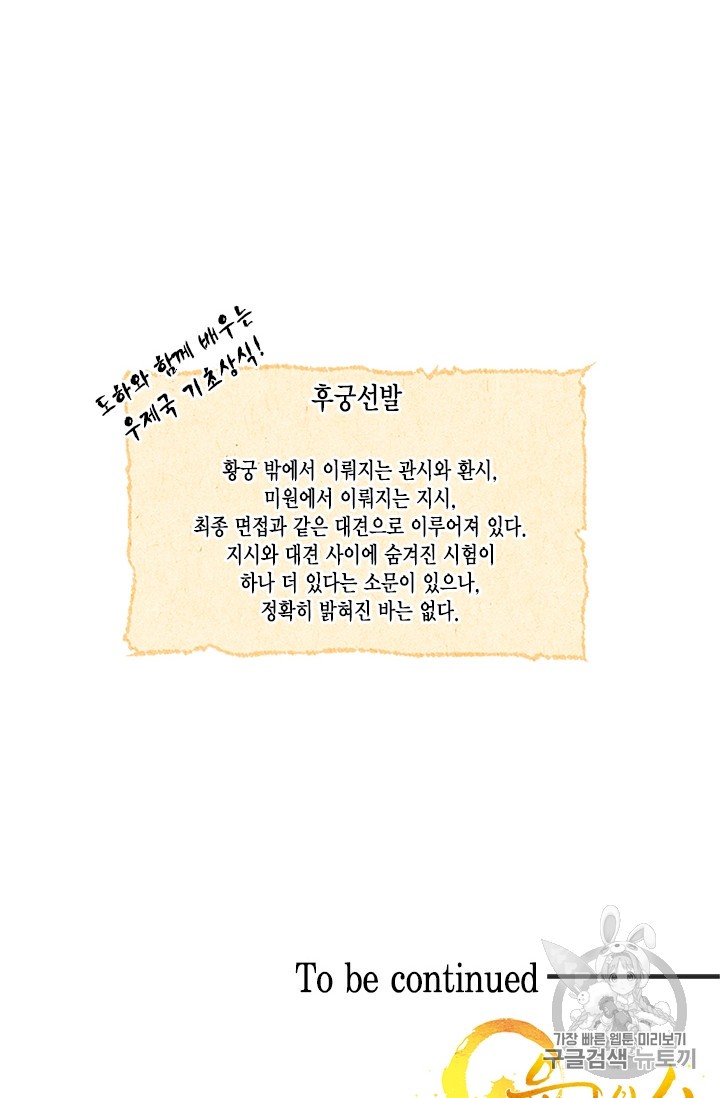 도하와 함께 배우는
우제국 기초상식!
후궁선발
황궁 밖에서 이뤄지는 관시와 환시,
미원에서 이뤄지는 지시,
최종 면접과 같은 대견으로 이루어져 있다.
지시와 대견 사이에 숨겨진 시험이
하나 더 있다는 소문이 있으나,
정확히 밝혀진 바는 없다.
To be continued
가장 빠른 웹툰 미리보기
구글검색 뉴토끼